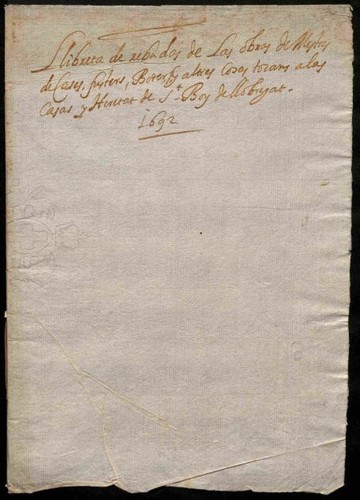 Llibreta de rebudas de Las obras de Mestres
de Cases, fusters, Boters, y altres Cosas tocants a las
Casas, y Heretat de St. Boy de llobregat.
1692